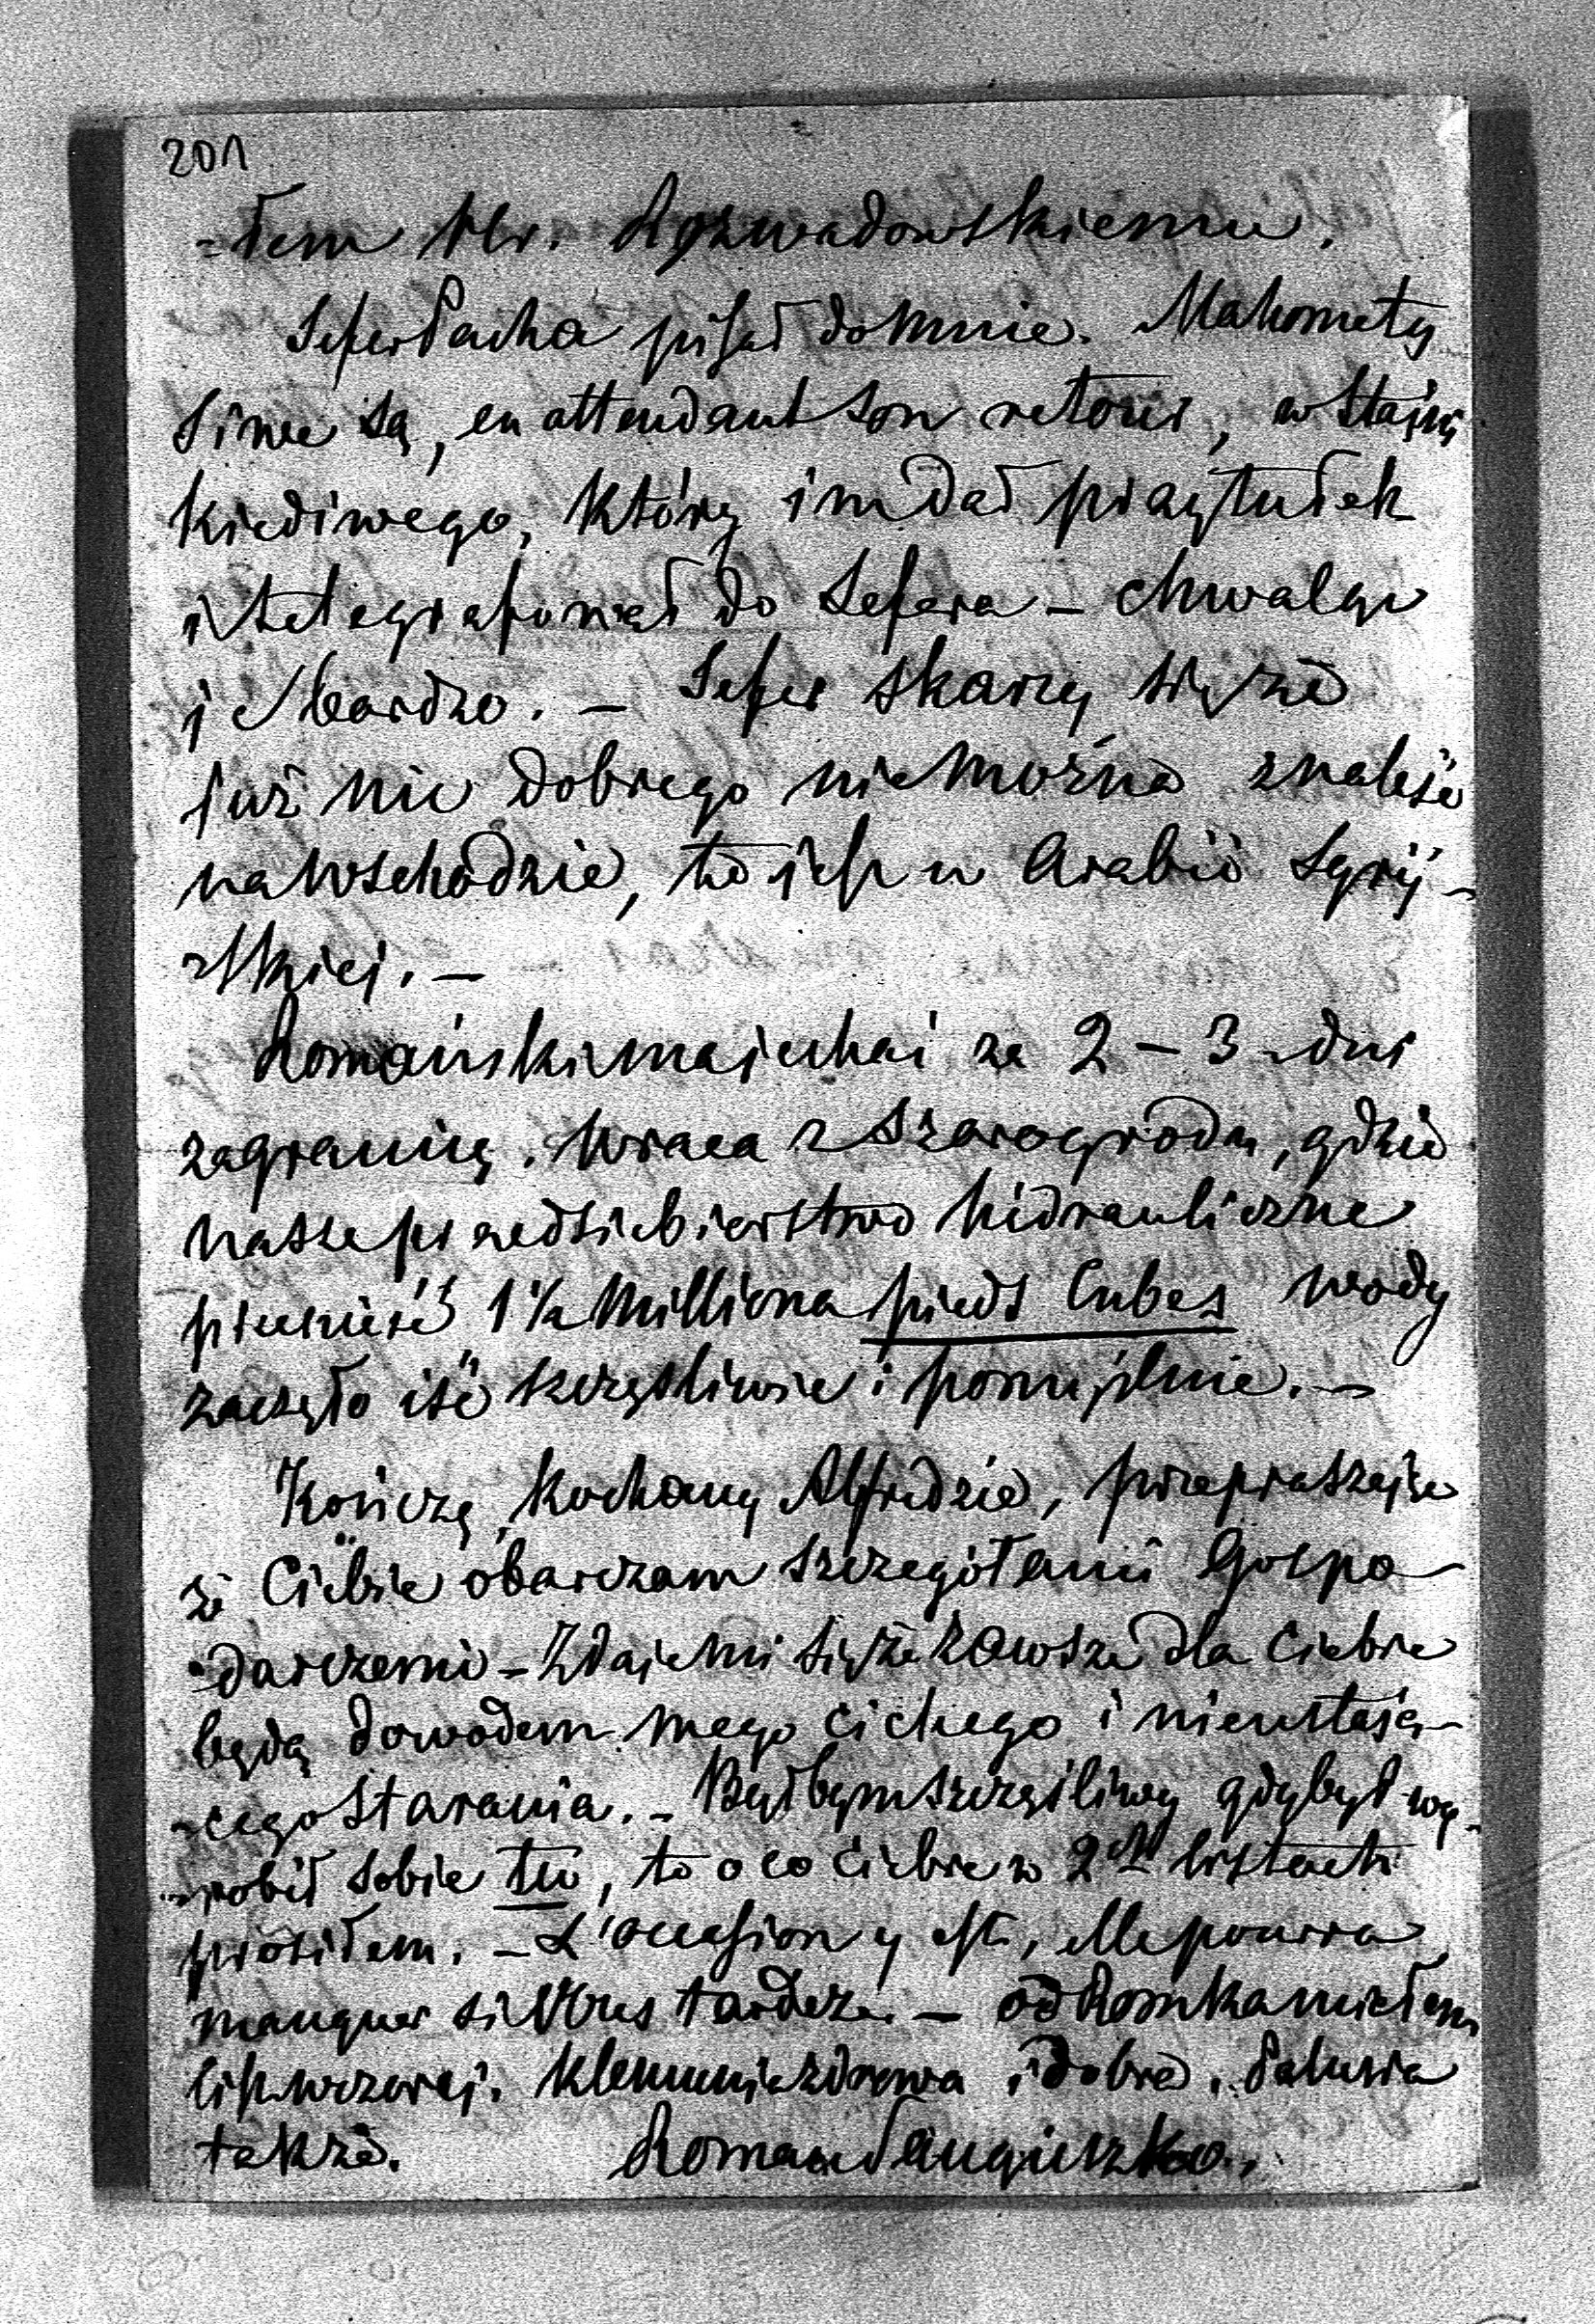 201
-łem Hr. Rozwadowskiemu.
Sefer Pacha pisał do mnie. Mahomety
Siwe są, en attendant son retour, w stajni
Kiediwego, który im dał przytułek
i telegrafował do Sefera – chwalą
je bardzo. – Sefer skarży się że
już nic dobrego nie można znaleść
na Wschodzie, to jest w Arabii Syryj-
skiej. –
Romański ma jechać za 2 – 3 dni
zagranicę. Wraca z Szarogrodu, gdzie
nasze przedsiebierstwo hidrauliczne
1½ Milliona pieds Cubes wody
zaczęło iść szczęśliwie i pomyślnie. –
Kończę, kochany Alfredzie, przepraszając
że Ciebie obarczam szczegółami Gospo-
-darczemi – Zdaje mi się że zawsze dla Ciebie
będą dowodem mego cichego i nieustają-
-cego starania. – Byłbym szczęśliwy gdybyś wy-
-robił sobie tu, to o co Ciebie w 2ch listach
prosiłem. – L'occasion y est, elle pourra
manquer si Vous tardez. – od Romka miałem
list wczoraj. Klemunia zdrowa i dobra.
także. Roman Sanguszko.